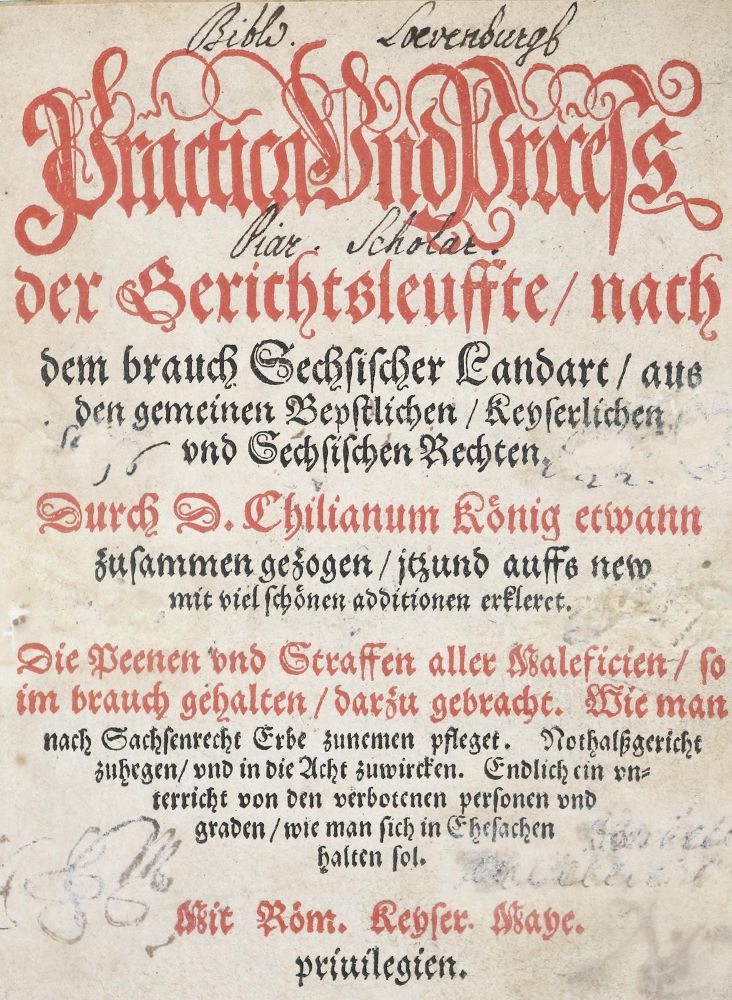 Bibl. Loevenburgb
Practica Und Process
Piar. Scholar.
der Gerichtsleuffte / nach
dem brauch Sechsischer Landart / aus
den gemeinen Bepstlichen / Keyserlichen
vnd Sechsischen Rechten.
Durch D. Chilianum König etwann
zusammen gezogen / jtzund auffs new
mit viel schönen additionen erkleret.
Die Peenen vnd Straffen aller Maleficien / so
im brauch gehalten / darzu gebracht. Wie man
nach Sachsenrecht Erbe zunemen pfleget. Nothalßgericht
zuhegen / vnd in die Acht zuwircken. Endlich ein vn=
terricht von den verbotenen personen vnd
graden / wie man sich in Ehesachen
halten sol.
Mit Röm. Keyser. Maye.
priuilegien.